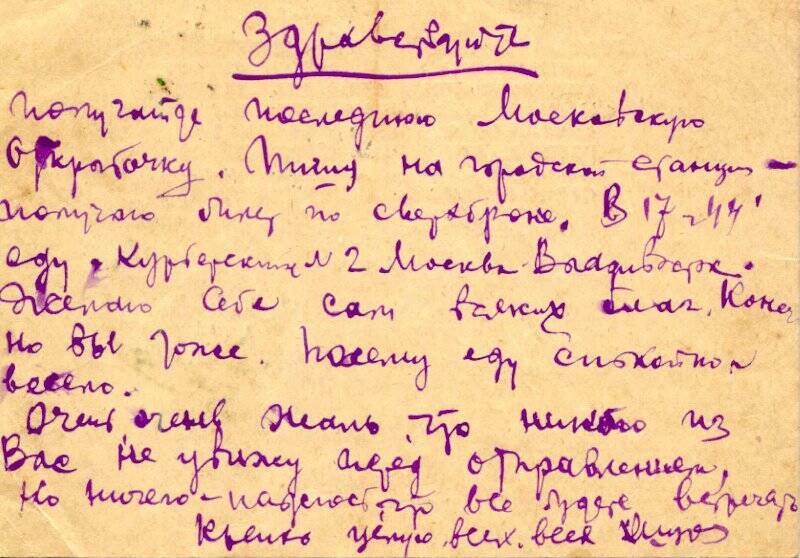 Здравствуйте
получайте последнюю Московскую
открыточку. Пишу на городской станции –
получаю билет по сверхброне. В 17-44'
еду Курьерским N 2 Москва-Владивосток.
Желаю себе сам всяких благ. Конеч
но вы тоже. Поэтому еду спокойно и
весело.
Очень очень жаль, что никого из
Вас не увижу перед отправлением,
Но ничего – надеюсь, что все будете встречать
Крепко целую всех, всех